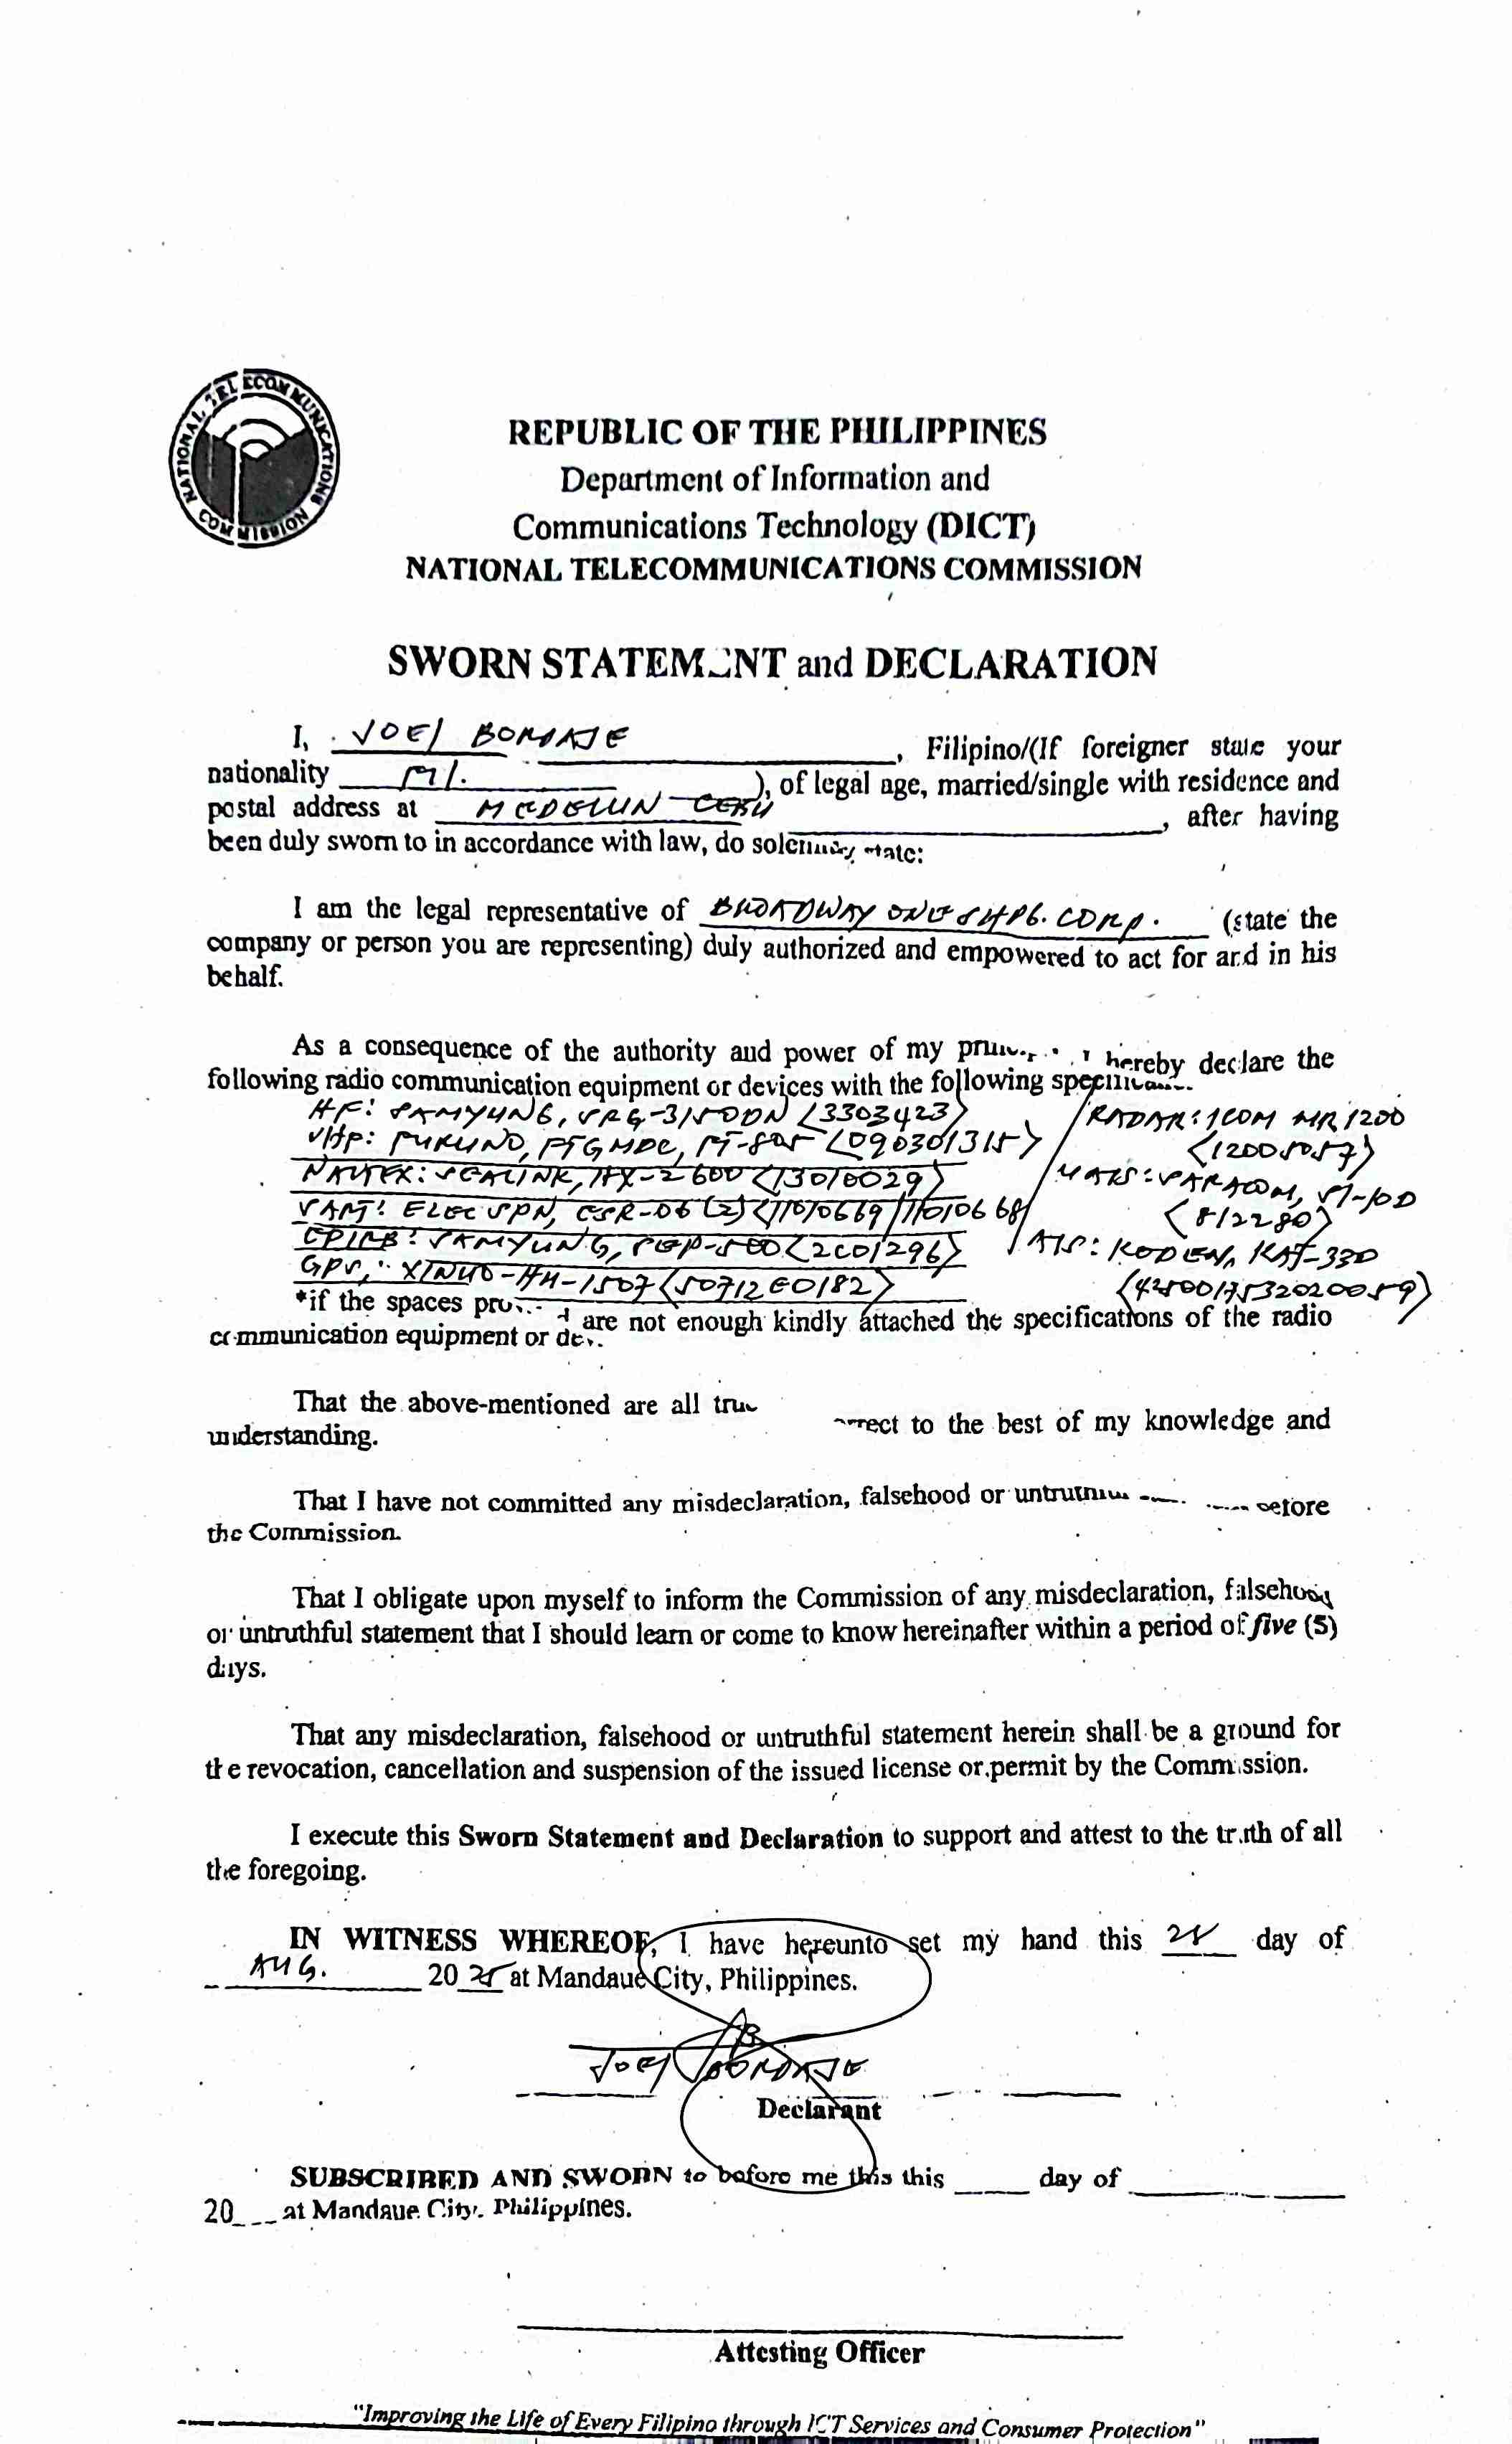 NATIONAL TELECOMMUNICATIONS COMMISSION
REPUBLIC OF THE PHILIPPINES
Department of Information and
Communications Technology (DICT)
NATIONAL TELECOMMUNICATIONS COMMISSION
SWORN STATEMENT and DECLARATION
I, JOEL BORDAJE, Filipino/(If foreigner state your
nationality ), of legal age, married/single with residence and
postal address at MEDELLIN CEBU, after having
been duly sworn to in accordance with law, do solemnly state:
I am the legal representative of BROADWAY ONE SHPG. CORP. (state the
company or person you are representing) duly authorized and empowered to act for and in his
behalf.
As a consequence of the authority and power of my I hereby declare the
following radio communication equipment or devices with the following
HF: SAMYUNG, SRG-3150DN <3303423> / RADAR: ICOM MR 1200
VHF: FURUNO, <090301315> <12005057>
NAVTEX: SEALINK, <13010029> / SARTS: SARACOM,
SART: ELEC SPN, CSR-06 (2) <11010669/11010668/ <812280>
EPIRB: SAMYUNG, SEP-500 <2C01296> / AIS: KODEN, KAT-330
GPS: XINUO-HH-1507 <50712E0182> <4250017532020059>
*if the spaces are not enough kindly attached the specifications of the radio
communication equipment or
That the above-mentioned are all to the best of my knowledge and
understanding.
That I have not committed any misdeclaration, falsehood or before
the Commission.
That I obligate upon myself to inform the Commission of any misdeclaration, falsehood
or untruthful statement that I should learn or come to know hereinafter within a period of five (5)
days.
That any misdeclaration, falsehood or untruthful statement herein shall be a ground for
the revocation, cancellation and suspension of the issued license or permit by the Commission.
I execute this Sworn Statement and Declaration to support and attest to the truth of all
the foregoing.
IN WITNESS WHEREOF, I have hereunto set my hand this day of
AUG. 2025 at Mandaue City, Philippines.
JOEL BORDAJE
Declarant
SUBSCRIBED AND SWORN to before me this this ____ day of ____
20___ at Mandaue City, Philippines.
Attesting Officer
"Improving the Life of Every Filipino through ICT Services and Consumer Protection"